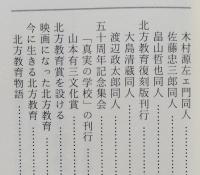 木村源左エ門同人……………
佐藤忠三郎同人……………
畠山哲也同人……………
北方教育復刻版刊行……………
大島清蔵同人……………
渡辺政太郎同人……………
五十周年記念集会……………
「真実の学校」の刊行……………
山本有三文化賞……………
北方教育賞を設ける……………
映画になった北方教育……………
今に生きる北方教育……………
北方教育物語……………